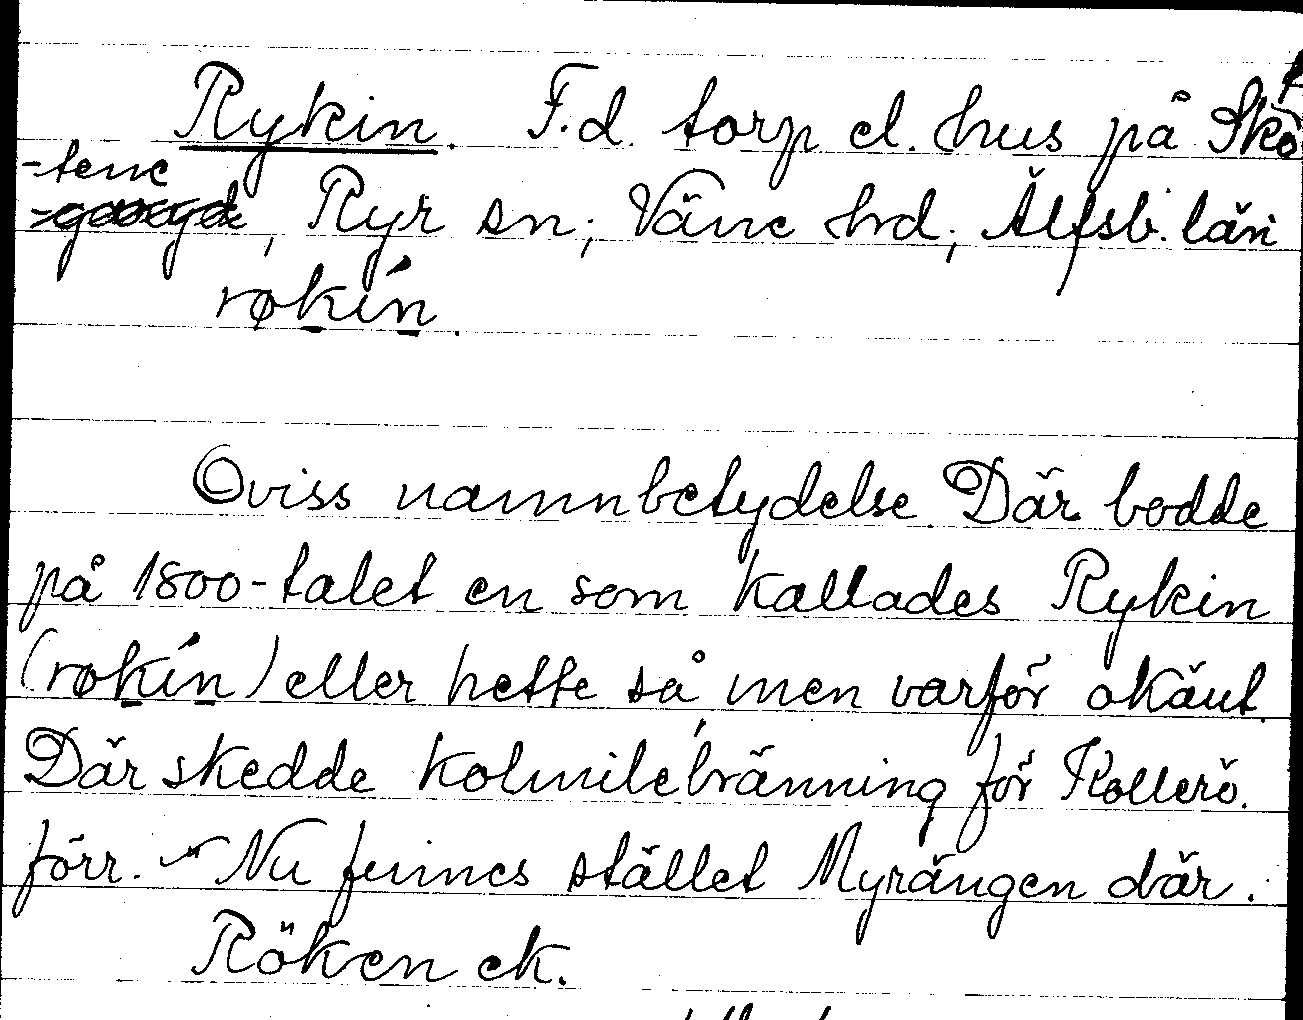 Rykin. F.d. torp el. hus på Skö
-tene
, Ryr sn; Väne hrd; Älfsb. län
røkín.
Oviss namnbetydelse. Där bodde
på 1800-talet en som kallades Rykin
(røkín) eller hette så men varför okänt.
Där skedde kolmilebränning för Kollerö.
förr. - Nu finnes stället Myrängen där.
Röken ek.